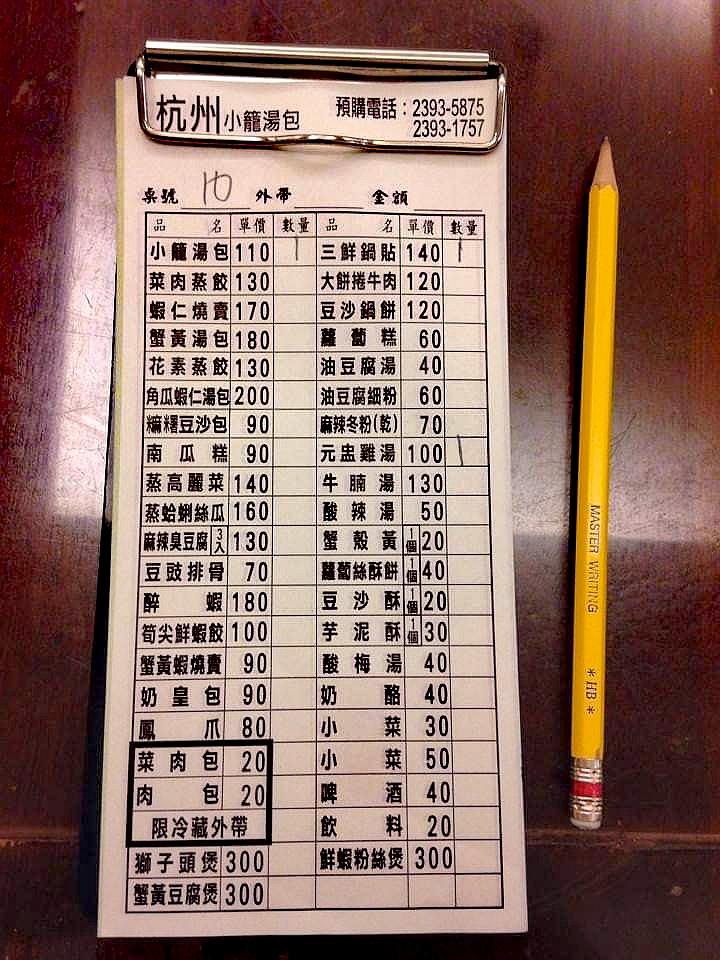 杭州小籠湯包 預購電話：2393-5875
2393-1757
桌號 10 外帶 金額
品名 單價 數量 品名 單價 數量
小籠湯包 110 1 三鮮鍋貼 140 1
菜肉蒸餃 130 大餅捲牛肉 120
蝦仁燒賣 170 豆沙鍋餅 120
蟹黃湯包 180 蘿蔔糕 60
花素蒸餃 130 油豆腐湯 40
角瓜蝦仁湯包 200 油豆腐細粉 60
糯糬豆沙包 90 麻辣冬粉(乾) 70
南瓜糕 90 元盅雞湯 100 1
蒸高麗菜 140 牛腩湯 130
蒸蛤蜊絲瓜 160 酸辣湯 50
麻辣臭豆腐 3入 130 蟹殼黃 1個 20
豆豉排骨 70 蘿蔔絲酥餅 1個 40
醉蝦 180 豆沙酥 1個 20
筍尖鮮蝦餃 100 芋泥酥 1個 30
蟹黃蝦燒賣 90 酸梅湯 40
奶皇包 90 奶酪 40
鳳爪 80 小菜 30
菜肉包 20 小菜 50
肉包 20 啤酒 40
限冷藏外帶 飲料 20
獅子頭煲 300 鮮蝦粉絲煲 300
蟹黃豆腐煲 300
MASTER WRITING * HB *